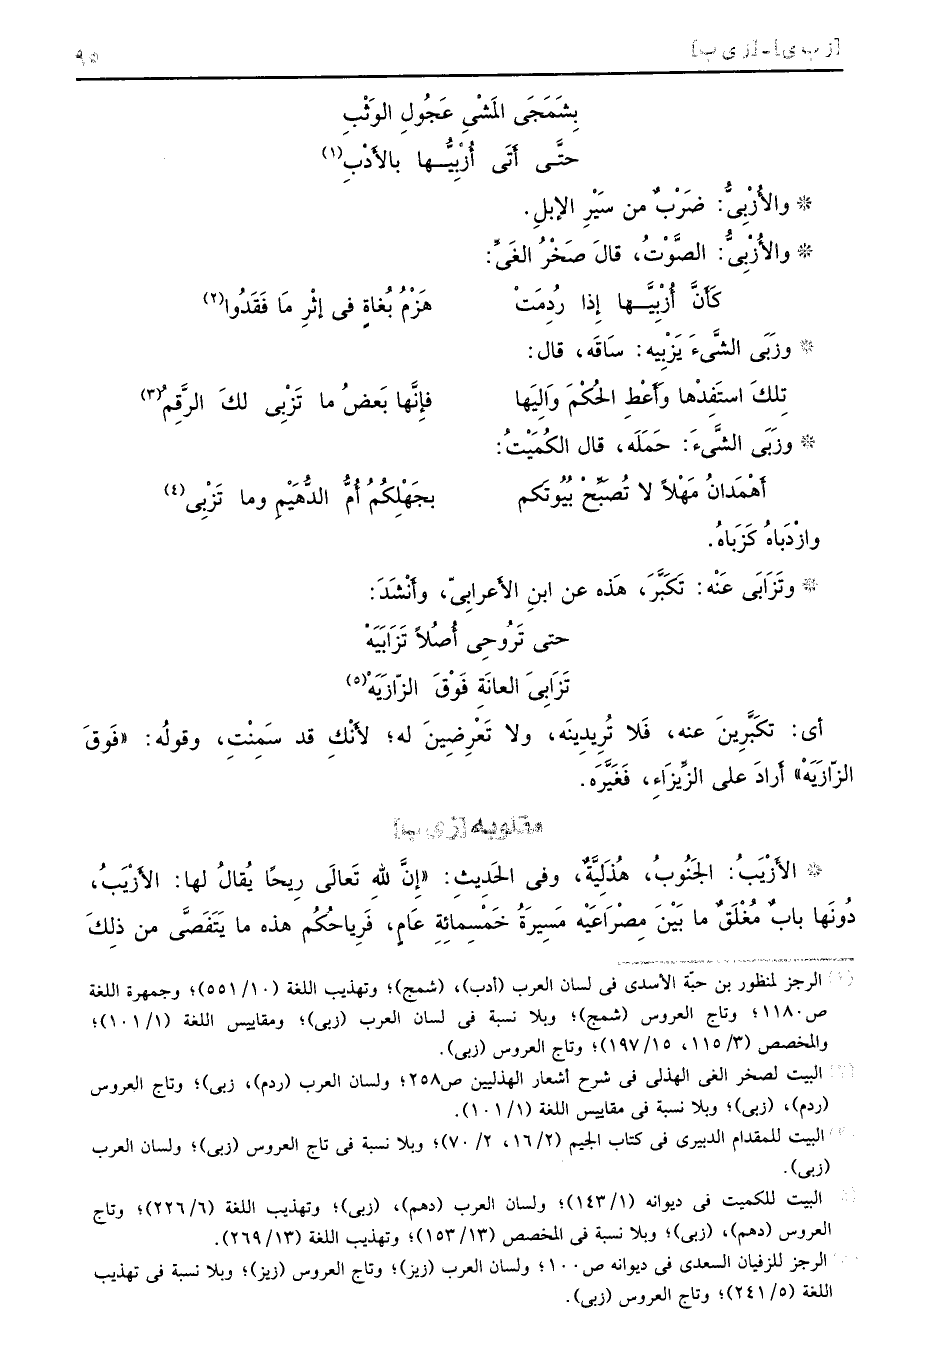 [ز ب ى] - [ز ى ب] ٩٥
بِشَمَجَى المَشْىِ عَجُولِ الوَثْبِ
حتَّـى أتَى أُزْبِيُّـها بالأَدْبِ(١)
* والأُزْبِىُّ: ضَرْبٌ من سَيْرِ الإبلِ.
* والأُزْبِىُّ: الصَّوْتُ، قالَ صَخْرُ الغَىِّ:
كَأَنَّ أُزْبِيَّـها إذا رُدِمَتْ هَزْمُ بُغاةٍ فى إثْرِ مَا فَقَدُوا(٢)
* وزَبَى الشَّىءَ يَزْبِيه: سَاقَه، قال:
تِلكَ استَفِدْها وأَعْطِ الحُكْمَ وَالِيَها فإنَّها بَعضُ ما تَزْبِى لكَ الرَّقِمُ(٣)
* وزَبَى الشَّىءَ: حَمَلَه، قال الكُمَيْتُ:
أهَمْدَانُ مَهْلاً لا تُصَبِّحْ بُيُوتَكم بجَهْلِكُمُ أُمُّ الدُّهَيْمِ وما تَزْبِى(٤)
وازْدَباهُ كَزَباهُ.
* وتَزَابَى عَنْه: تَكَبَّرَ، هَذه عن ابنِ الأعرابىّ، وأَنْشَدَ:
حتى تَرُوحِى أُصُلاً تَزَابَيَهْ
تَزَابِىَ العانَةِ فَوْقَ الزّازيَهْ(٥)
أى: تكَبَّرِينَ عنه، فَلا تُرِيدِينَه، ولا تَعْرِضِينَ له؛ لأنَّكِ قد سَمِنْتِ، وقولُه: «فَوقَ
الزّازيَهْ» أرادَ على الزِّيزَاءِ، فَغَيَّرَه.
مقلوبه [ز ى ب]
* الأَزْيَبُ: الجَنُوبُ، هُذَليَّةٌ، وفى الحَدِيثِ: «إنَّ للهِ تَعالَى رِيحًا يُقالُ لها: الأَزْيَبُ،
دُونَها بابٌ مُغْلَقٌ ما بَيْنَ مِصْرَاعَيْه مَسِيرَةُ خَمْسِمائِةِ عَامٍ، فَرِياحُكُم هذه ما يَتَفَصَّى من ذلِكَ
(١) الرجز لمنظور بن حبّة الأسدى فى لسان العرب (أدب)، (شمج)؛ وتهذيب اللغة (١٠/٥٥١)؛ وجمهرة اللغة
ص١١٨٠؛ وتاج العروس (شمج)؛ وبلا نسبة فى لسان العرب (زبى)؛ ومقاييس اللغة (١/١٠١)؛
والمخصص (٣/١١٥، ١٥/١٩٧)؛ وتاج العروس (زبى).
(٢) البيت لصخر الغى الهذلى فى شرح أشعار الهذليين ص٢٥٨؛ ولسان العرب (ردم)، زبى)؛ وتاج العروس
(ردم)، (زبى)؛ وبلا نسبة فى مقاييس اللغة (١/١٠١).
(٣) البيت للمقدام الدبيرى فى كتاب الجيم (١٦/٢، ٧٠/٢)؛ وبلا نسبة فى تاج العروس (زبى)؛ ولسان العرب
(زبى).
(٤) البيت للكميت فى ديوانه (١/١٤٣)؛ ولسان العرب (دهم)، (زبى)؛ وتهذيب اللغة (٦/٢٢٦)؛ وتاج
العروس (دهم)، (زبى)؛ وبلا نسبة فى المخصص (١٣/١٥٣)؛ وتهذيب اللغة (١٣/٢٦٩).
الرجز للزفيان السعدى فى ديوانه ص١٠٠؛ ولسان العرب (زيز)؛ وتاج العروس (زيز)؛ وبلا نسبة فى تهذيب
اللغة (٥/٢٤١)؛ وتاج العروس (زبى).